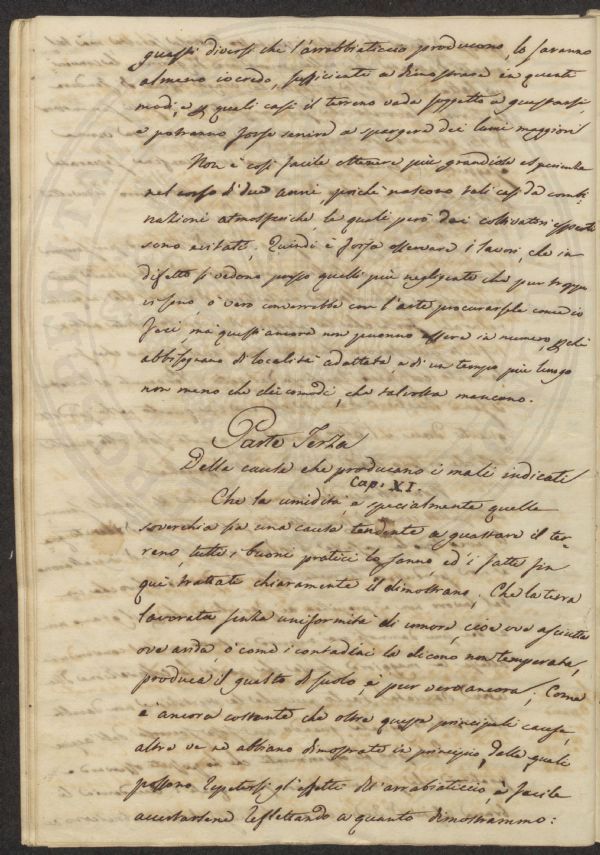 questi diversi che l'arrabbiaticcio producono, lo saranno
almeno io credo, sufficienti a dimostrare in quanti
modi, e quali casi il terreno vada soggetto a guastarsi
e potranno forse servire a spargere dei lumi maggiori
Non è così facile ottenere più grandiose esperienze
nel corso di due anni, poichè nascono tali casi da combi-
nazioni atmosferiche, le quali però dai coltivatori esperti
sono evitate. Quindi è forza osservare i lavori, che in
difetto si vedono presso quelli più negligenti che pur troppo
vi sono, o vero converrebbe con l'arte procurarsele come io
feci, ma questi ancora non possono essere in numero,
abbisognano di località adattate e di un tempo più lungo
non meno che dei comodi, che talvolta mancono.
Parte Terza
Delle cause che producano i mali indicati
Cap: XI.
Che la umidità, e specialmente quella
soverchia sia una causa tendente a guastare il ter-
reno, tutti i buoni pratici lo sanno, ed i fatti fin
qui trattati chiaramente il dimostrano; Che la terra
lavorata senza uniformità di umore, cioè ove asciutta
ove arida, o come i contadini la dicono non temperata,
produca il guasto di suolo, è pur vero ancora; Come
è ancora costante che oltre queste principali cause,
altre ve ne abbiano dimostrate in principio, dalle quali
possono ripetersi gl'effetti dell'arrabiaticcio, è facile
accertarsene reflettendo a quanto dimostrammo: